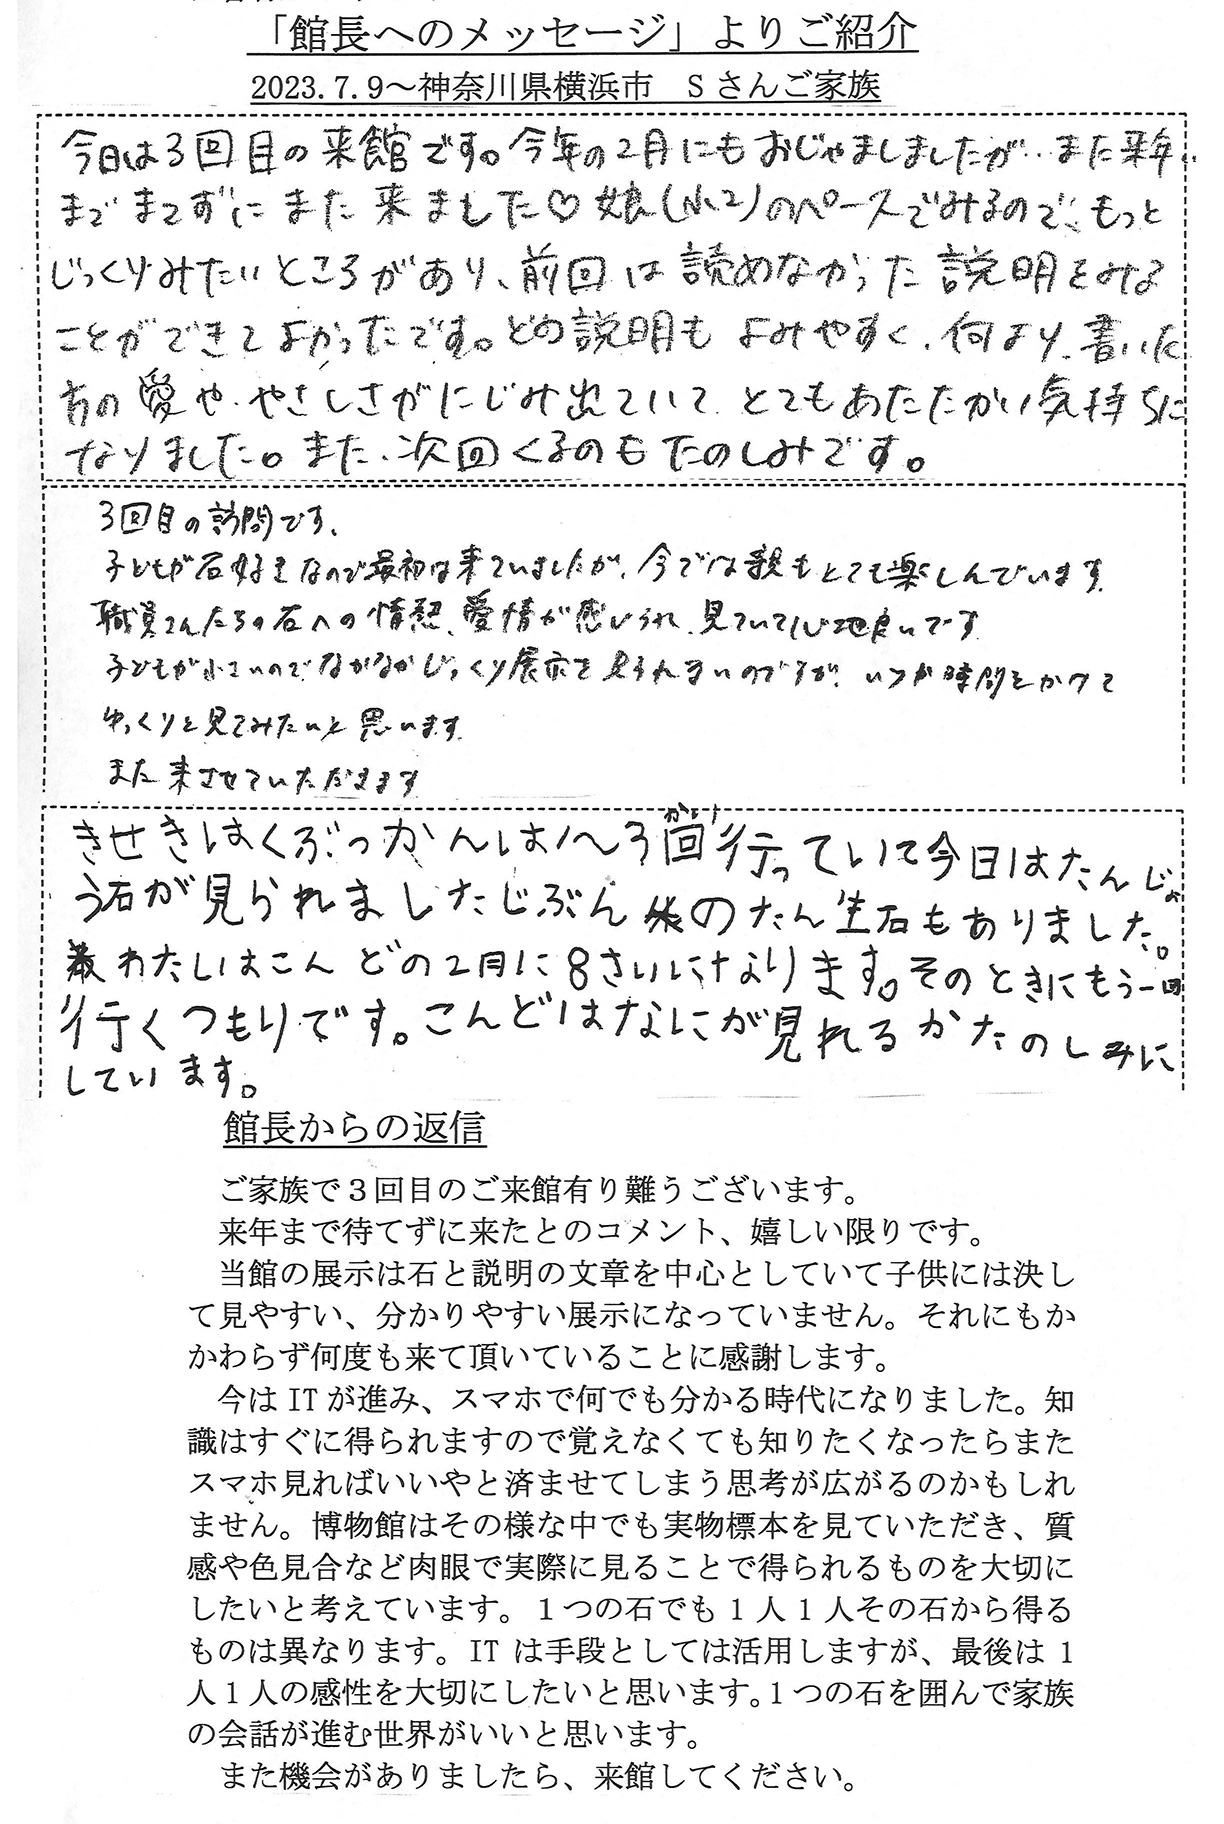 「館長へのメッセージ」よりご紹介
2023.7.9～神奈川県横浜市　Sさんご家族
今日は3回目の来館です。今年の2月にもおじゃましましたが…また来年
まで まてずに また 来ました♡ 娘(小2)のペースでみるので、もっと
じっくりみたいところがあり、前回は読めなかった説明をみる
ことができてよかったです。どの説明も よみやすく、何より、書いた
方の愛や、やさしさがにじみ出ていて とてもあたたかい気持ちに
なりました。また、次回くるのもたのしみです。
3回目の訪問です、
子どもが石好きなので最初は来ていましたが、今では親もとても楽しんでいます。
職員さんたちの石への情熱、愛情が感じられ、見ていて心地良いです
子どもが小さいのでなかなかじっくり展示を見られないのですが、いつか時間をかけて
ゆっくりと見てみたいと思います。
また来させていただきます
きせきはくぶっかんは1～3回行っていて今日はたんじょ
かい
う石が見られましたじぶんのたん生石もありました。
わたしはこんどの2月に8さいになります。そのときにもう一回
行くつもりです。こんどはなにが見れるかたのしみに
しています。
館長からの返信
ご家族で３回目のご来館有り難うございます。
来年まで待てずに来たとのコメント、嬉しい限りです。
当館の展示は石と説明の文章を中心としていて子供には決し
て見やすい、分かりやすい展示になっていません。それにもか
かわらず何度も来て頂いていることに感謝します。
今は IT が進み、スマホで何でも分かる時代になりました。知
識はすぐに得られますので覚えなくても知りたくなったらまた
スマホ見ればいいやと済ませてしまう思考が広がるのかもしれ
ません。博物館はその様な中でも実物標本を見ていただき、質
感や色見合など肉眼で実際に見ることで得られるものを大切に
したいと考えています。１つの石でも１人１人その石から得る
ものは異なります。IT は手段としては活用しますが、最後は１
人１人の感性を大切にしたいと思います。１つの石を囲んで家族
の会話が進む世界がいいと思います。
また機会がありましたら、来館してください。